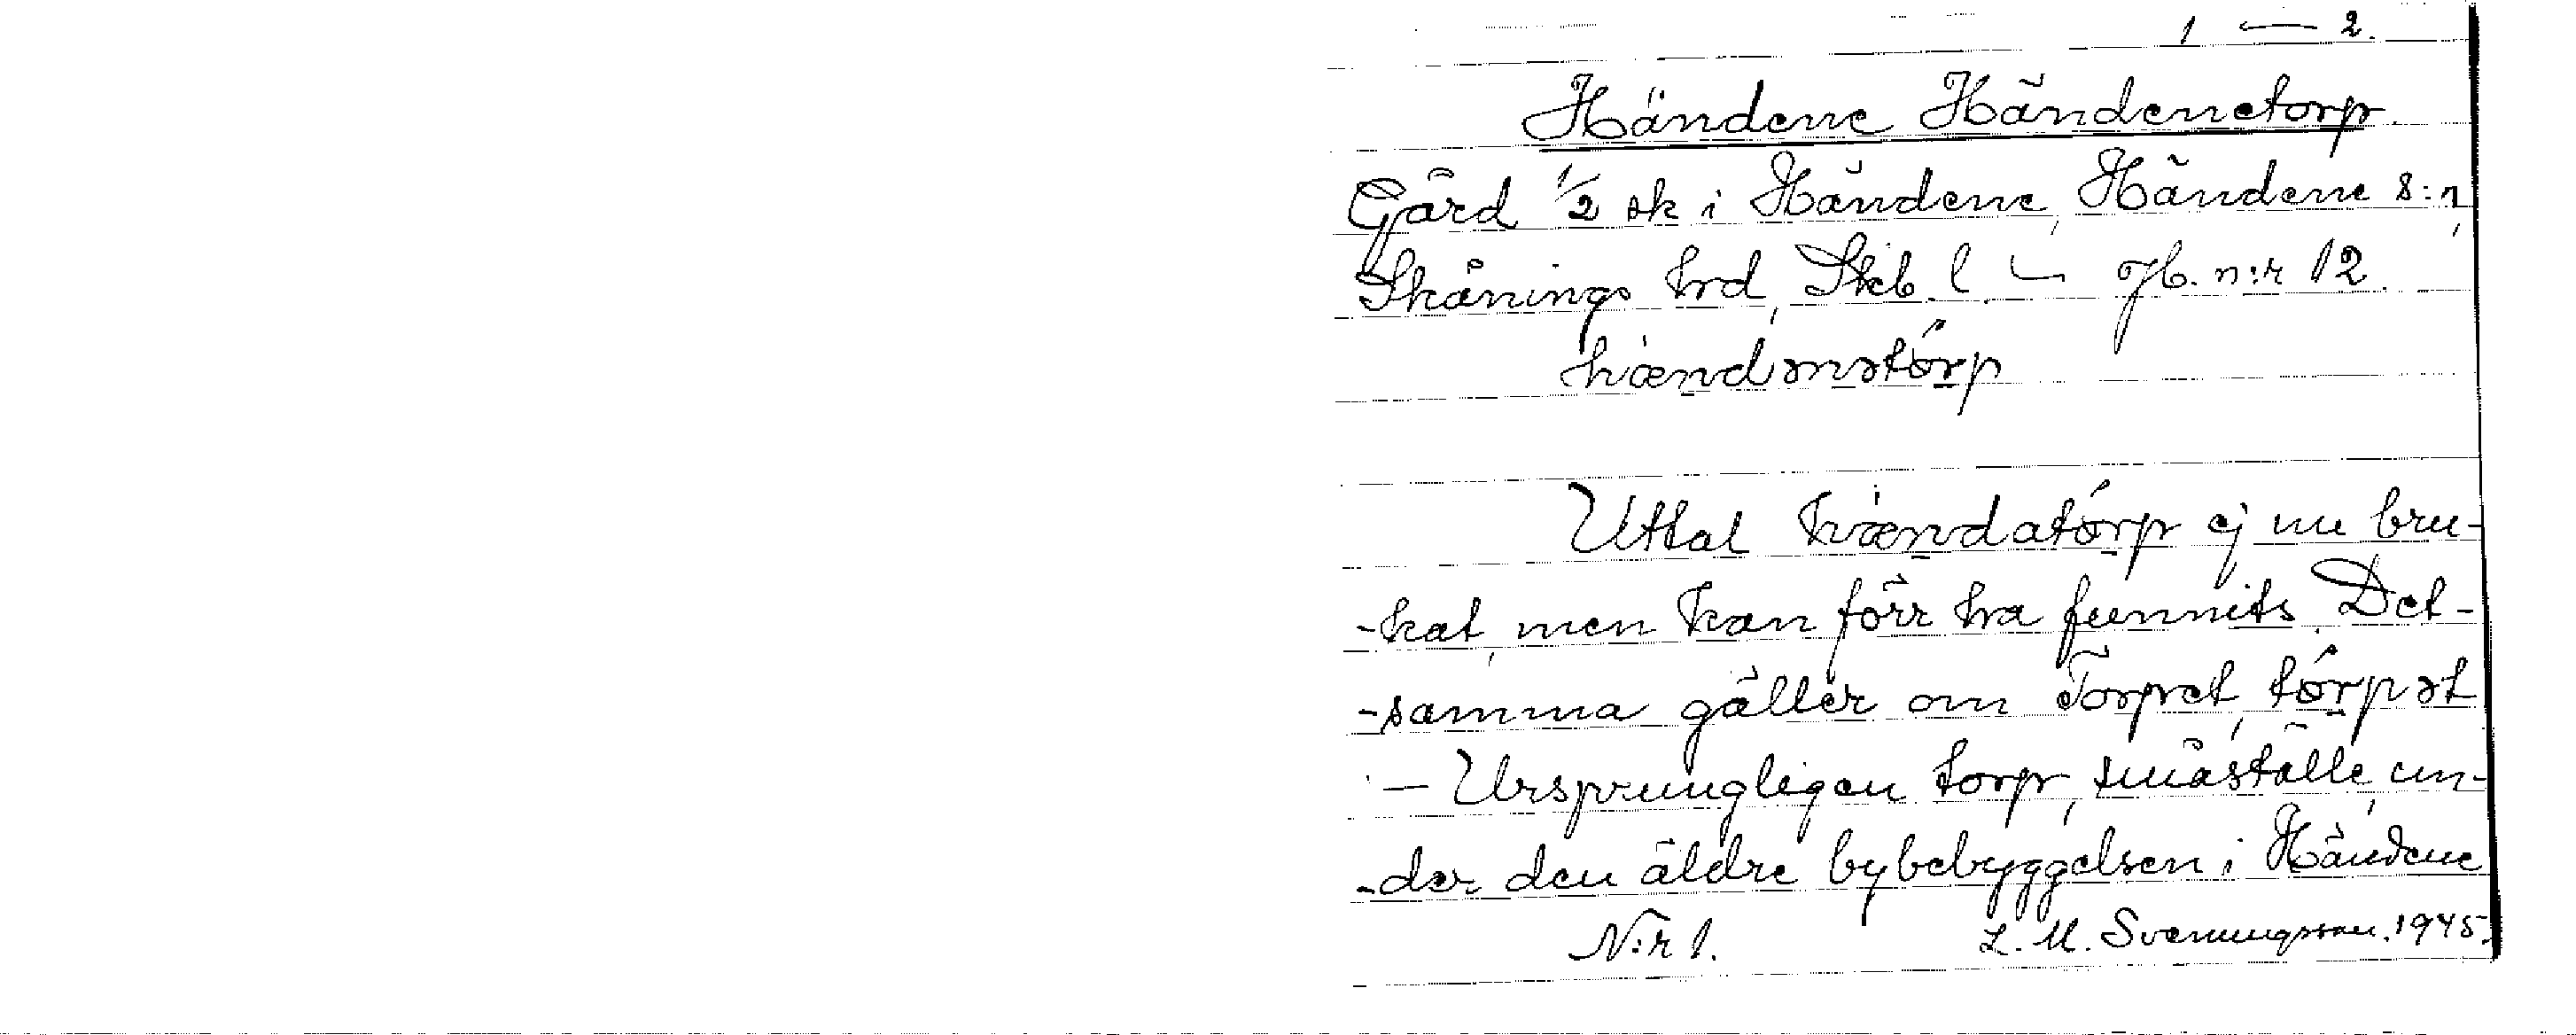 1 — 2.
Händene Händenetorp.
Gård 1/2 sk i Händene, Händene s:n,
Skånings hrd, Skb. l. — Jb. n:r 12.
hændənətórp
Uttal hændatórp ej nu bru-
-kat, men kan förr ha funnits. Det-
-samma gäller om Torpet, tórpət
— Ursprungligen torp, småställe, un-
-der den äldre bybebyggelsen i Händene
N:r 1. L. M. Svenungsson. 1945.